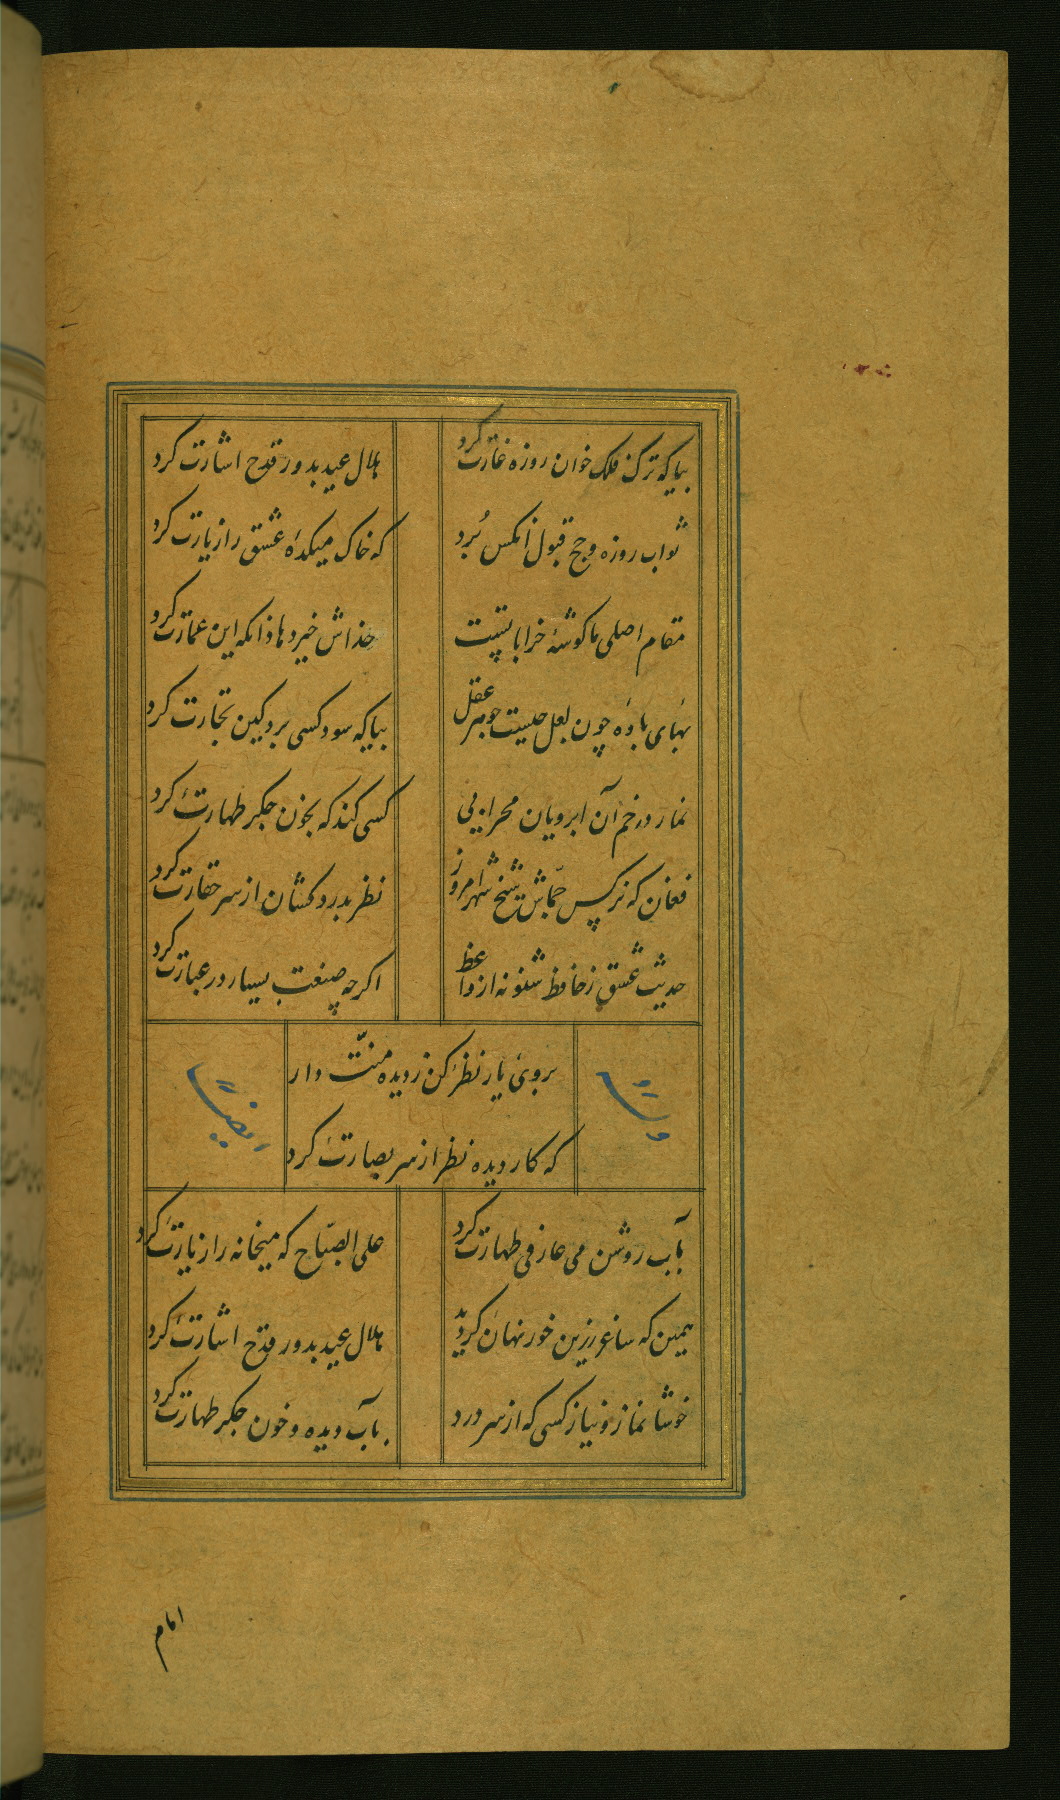 بیا که ترک فلک خوان روزه غارت کرد
هلال عید بدور قدح اشارت کرد
ثواب روزه و حج قبول آنکس بُرد
که خاک میکدهٔ عشق را زیارت کرد
مقام اصلی ما کوشهٔ خراباتست
خداش خیر دهاد انکه این عمارت کرد
بهای بادهٔ چون لعل چیست جوهر عقل
بیا که سود کسی برد کین تجارت کرد
نماز در خم آن ابرویان محرابی
کسی کند که بخون جکر طهارت کرد
فغان که نرکس جمّاش شیخ شهر امروز
نظر بدردکشان از سر حقارت کرد
حدیث عشق ز حافظ شنو نه از واعظ
اکرچه صنعت بسیار در عبارت کرد
بروی یار نظر کن ز دیده منّت دار
که کار دیده نظر از سر بصارت کرد
وله
ایضا
بآب روشن می عارفی طهارت کرد
علی الصّباح که میخانه را زیارت کرد
همین که ساغر زرین خور نهان کردید
هلال عید بدور قدح اشارت کرد
خوشا نماز و نیاز کسی که از سر درد
بآب دیده و خون جکر طهارت کرد
امام